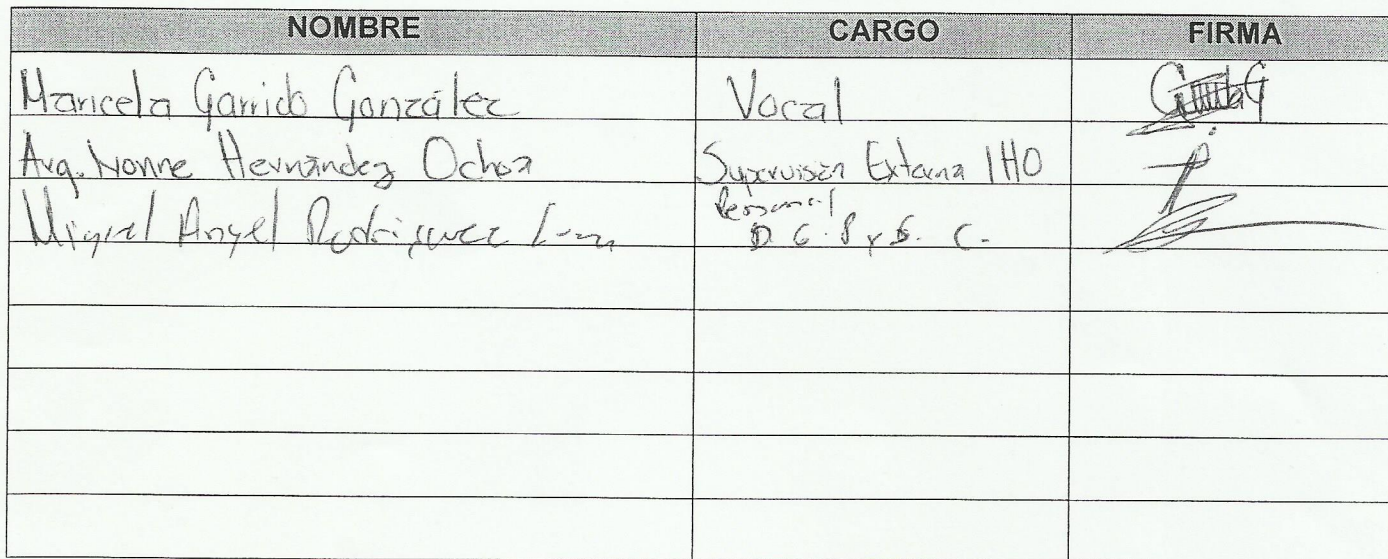 NOMBRE CARGO FIRMA
Maricela Garrido González Vocal
Arq. Ivonne Hernández Ochoa Supervisión Externa IHO
Miguel Angel Rodriguez Personal
D. G. P y S. C.